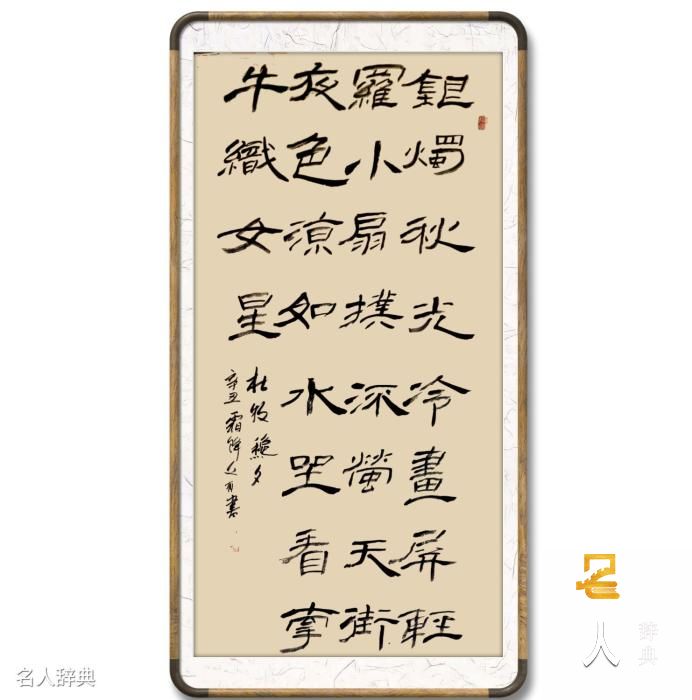 銀燭秋光冷畫屏輕
羅小扇撲流螢天街
夜色涼如水坐看牽
牛織女星
杜牧龝夕
辛丑霜降
名人辞典
人
辞典